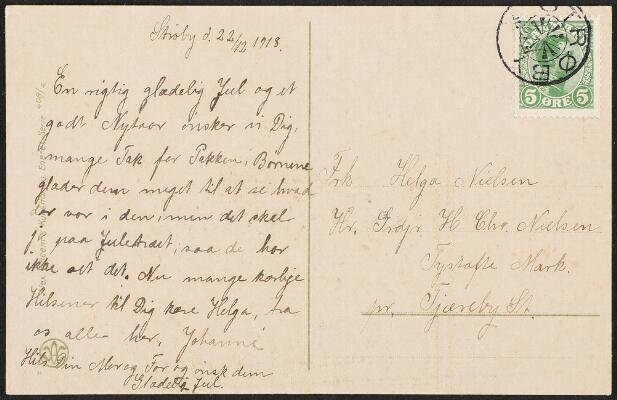 Strøby d. 22/12 1918.
En rigtig glædelig Jul og et
godt Nytaar ønsker vi Dig,
mange Tak for Pakken, Børnene
glæder dem meget til at se hvad
er vor i den, men det skel
j. paa Juletræet, saa de har
ikke set det. Nu mange kærlige
Hilsener til Dig kære Helga, fra
os alle her. Johanne
Hils Din Mor og Far og ønsk dem
Glædelig Jul.
STRØBY
5 ØRE 5
Frk Helga Nielsen
Hr. Grdjr. H. Chr. Nielsen
Tystofte Mark.
pr. Tjæreby St.